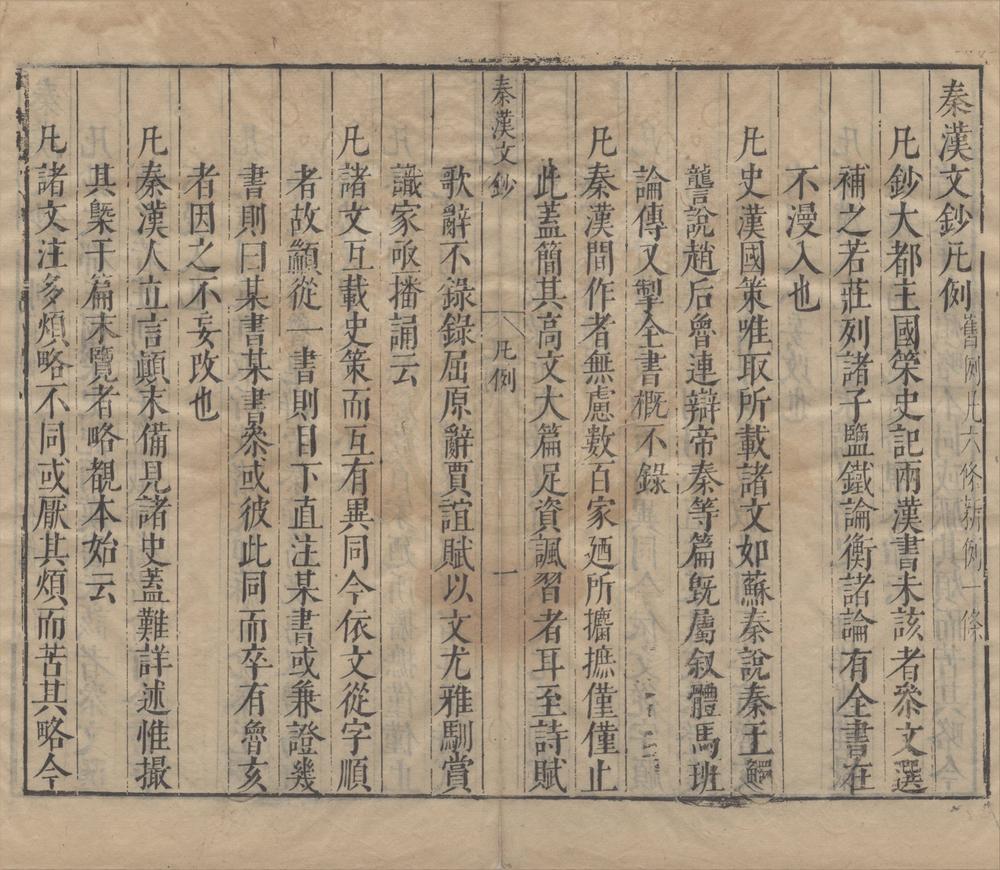 秦漢文鈔凡例舊例凡六條新例一條
凡鈔大都主國策史記兩漢書未該者叅文選
補之若莊列諸子鹽鐵論衡諸論有全書在
不漫入也
凡史漢國策唯取所載諸文如蘇秦說秦王觸
讋說趙后魯連辯帝秦等篇旣屬叙體馬班
論傳又掣全書槪不錄
凡秦漢間作者無慮數百家廼所攟摭僅僅止
此蓋簡其高文大篇足資諷習者耳至詩賦
秦漢文鈔
凡例
一
歌辭不錄錄屈原辭賈誼賦以文尤雅馴賞
識家亟播誦云
凡諸文互載史策而互有異同今依文從字順
者故顓從一書則目下直注某書或兼證幾
書則曰某書某書叅或彼此同而卒有魯亥
者因之不妄改也
凡秦漢人立言顛末備見諸史蓋難詳述惟撮
其槩于篇末覽者略覩本始云
凡諸文注多煩略不同或厭其煩而苦其略今